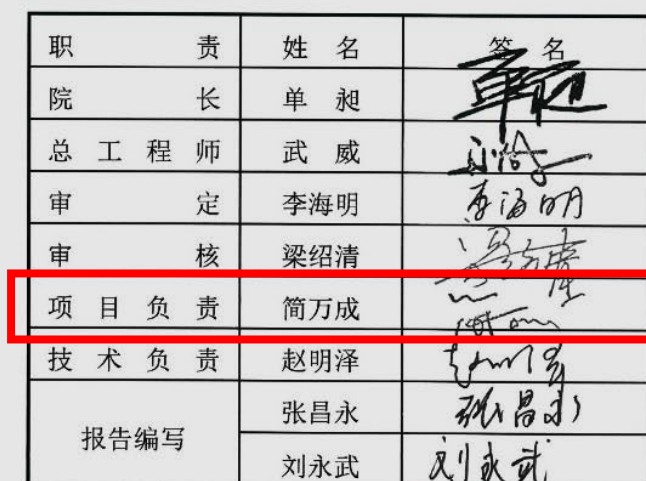 职 责 姓 名 签 名
院 长 单 昶 单昶
总 工 程 师 武 威
审 定 李海明 李海明
审 核 梁绍清
项 目 负 责 简万成
技 术 负 责 赵明泽
报告编写 张昌永 张昌永
刘永武 刘永武